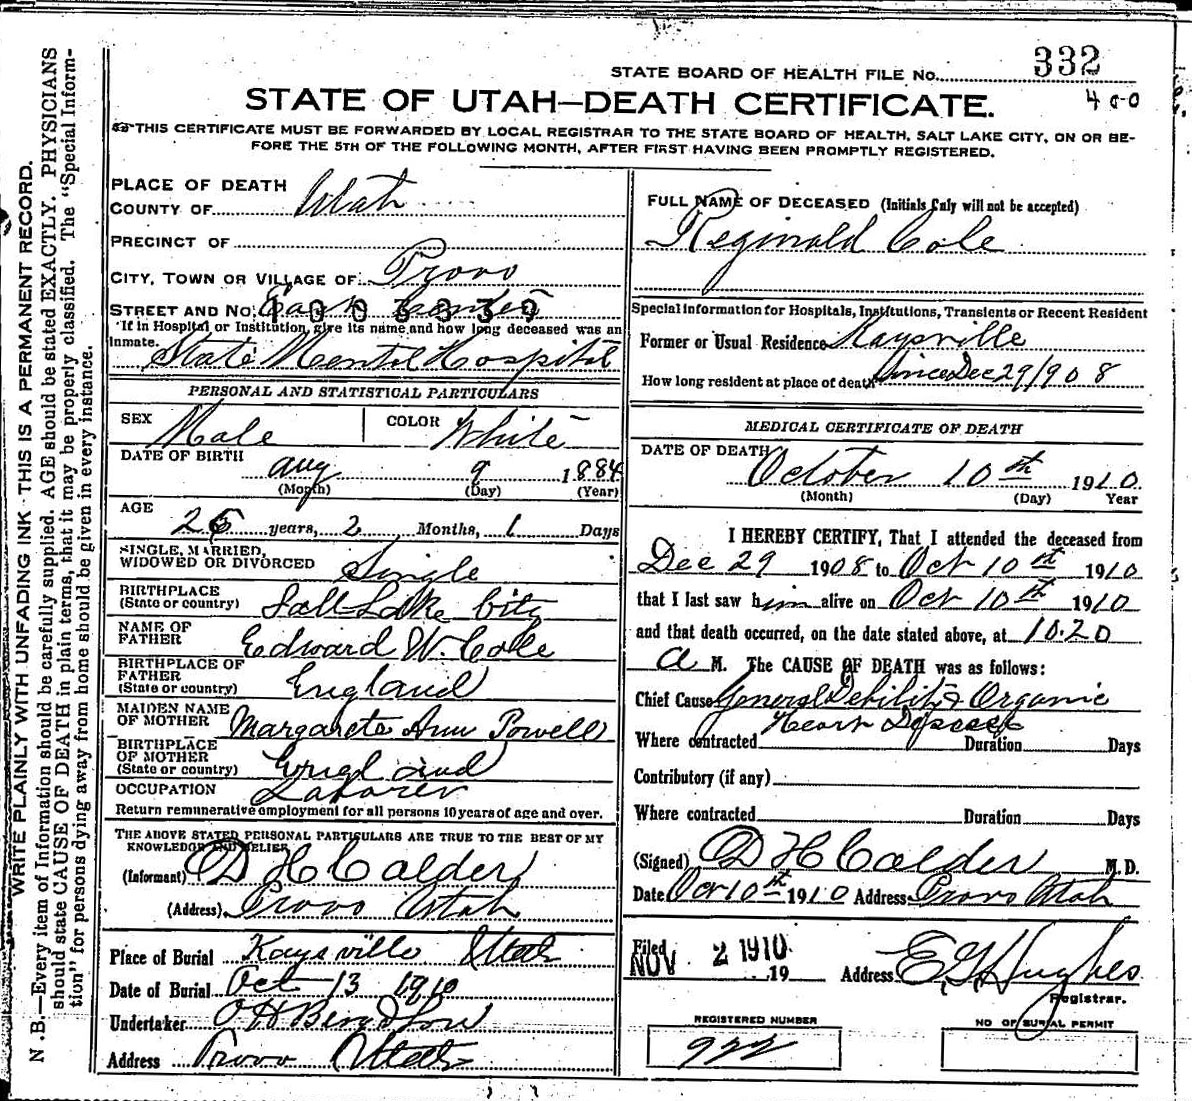 332
STATE BOARD OF HEALTH FILE No.
400
STATE OF UTAH—DEATH CERTIFICATE.
THIS CERTIFICATE MUST BE FORWARDED BY LOCAL REGISTRAR TO THE STATE BOARD OF HEALTH, SALT LAKE CITY, ON OR BE-
FORE THE 5TH OF THE FOLLOWING MONTH, AFTER FIRST HAVING BEEN PROMPTLY REGISTERED.
WRITE PLAINLY WITH UNFADING INK - THIS IS A PERMANENT RECORD.
N. B.—Every item of Information should be carefully supplied. AGE should be stated EXACTLY. PHYSICIANS
should state CAUSE OF DEATH in plain terms, that it may be properly classified. The "Special Inform-
tion" for persons dying away from home should be given in every instance.
PLACE OF DEATH
COUNTY OF Utah
PRECINCT OF
CITY, TOWN OR VILLAGE OF Provo
STREET AND No. East Center
1003339
If in Hospital or Institution, give its name and how long deceased was an
inmate. State Mental Hospital
PERSONAL AND STATISTICAL PARTICULARS
SEX Male COLOR White
DATE OF BIRTH Aug 9 1884
(Month) (Day) (Year)
AGE 26 years, 2 Months, 1 Days
SINGLE, MARRIED,
WIDOWED OR DIVORCED Single
BIRTHPLACE
(State or country) Salt Lake City
NAME OF
FATHER Edward W. Cole
BIRTHPLACE OF
FATHER
(State or country) England
MAIDEN NAME
OF MOTHER Margarete Ann Powell
BIRTHPLACE
OF MOTHER
(State or country) England
OCCUPATION Laborer
Return remunerative employment for all persons 10 years of age and over.
THE ABOVE STATED PERSONAL PARTICULARS ARE TRUE TO THE BEST OF MY
KNOWLEDGE AND BELIEF
(Informant) D H Calder
(Address) Provo Utah
Place of Burial Kaysville Utah
Date of Burial Oct 13 1910
Undertaker O H Berg & Son
Address Provo Utah
FULL NAME OF DECEASED (Initials only will not be accepted)
Reginald Cole
Special information for Hospitals, Institutions, Transients or Recent Resident
Former or Usual Residence Kaysville
How long resident at place of death Since Dec 29/908
MEDICAL CERTIFICATE OF DEATH
DATE OF DEATH October 10th 1910
(Month) (Day) Year
I HEREBY CERTIFY, That I attended the deceased from
Dec 29 1908 to Oct 10th 1910
that I last saw him alive on Oct 10th 1910
and that death occurred, on the date stated above, at 10.20
a M. The CAUSE OF DEATH was as follows:
Chief Cause General Debility & Organic
Heart Disease
Where contracted Duration Days
Contributory (if any)
Where contracted Duration Days
(Signed) D H Calder M.D.
Date Oct 10th 1910 Address Provo Utah
Filed NOV 2 1910
19 Address E G Hughes
Registrar.
REGISTERED NUMBER
922
NO OF BURIAL PERMIT